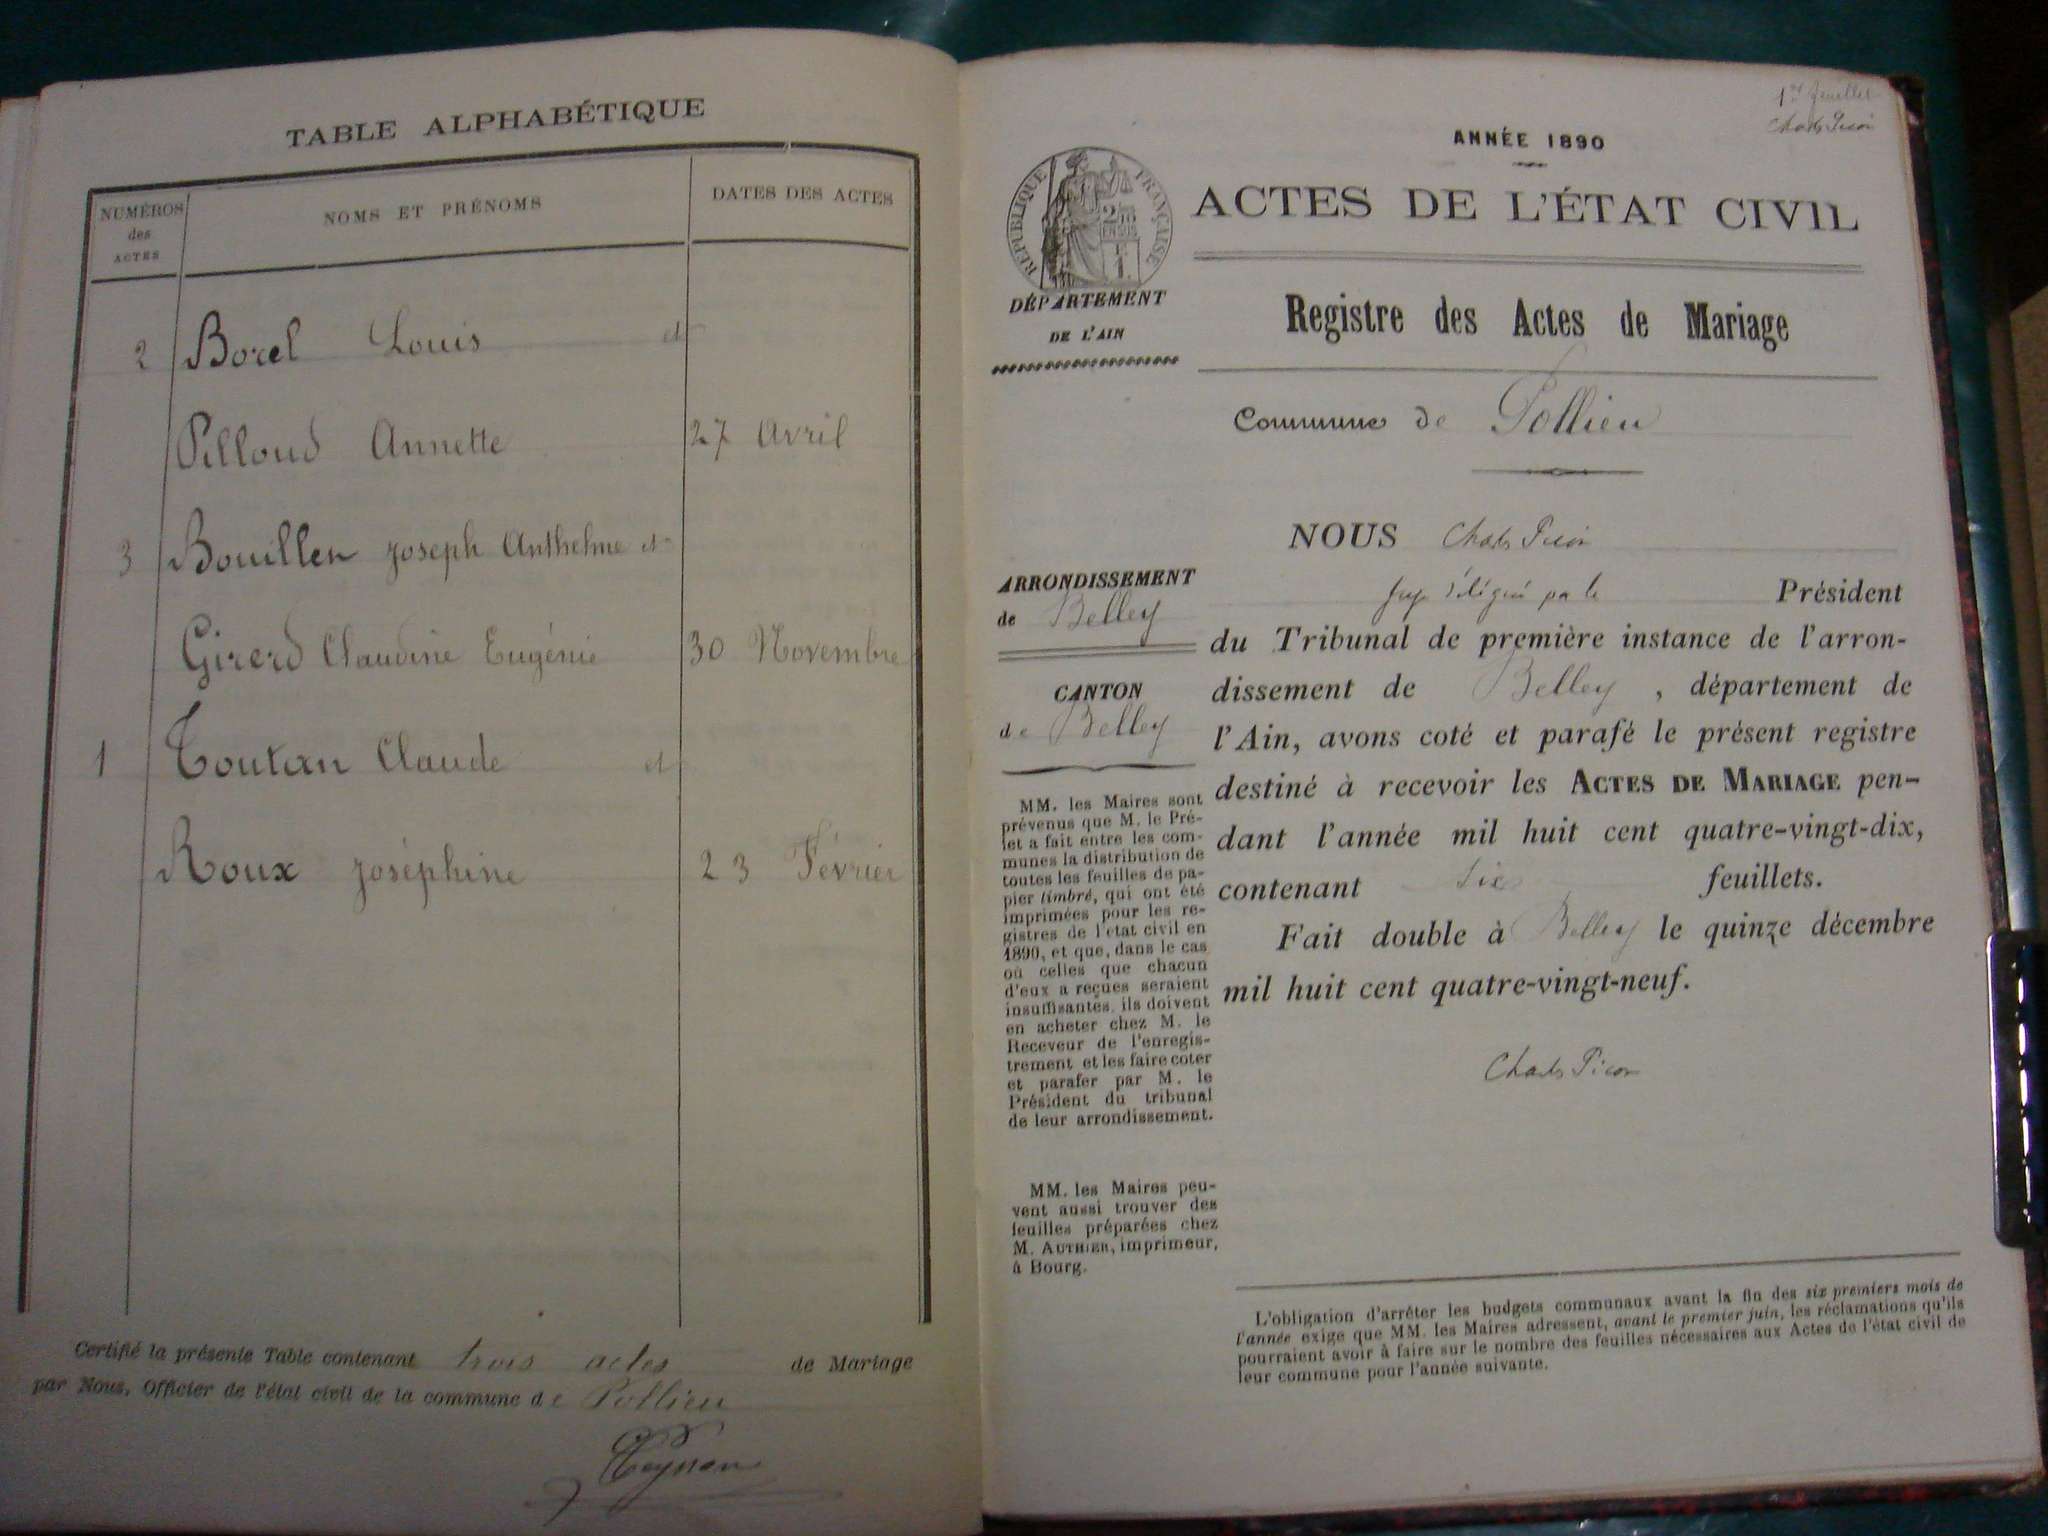 TABLE ALPHABÉTIQUE
NUMÉROS
des
ACTES
NOMS ET PRÉNOMS
DATES DES ACTES
2 Borel Louis et
Pilloud Annette 27 Avril
3 Bouillen Joseph Anthelme et
Girerd Claudine Eugénie 30 Novembre
1 Toutan Claude et
Roux Joséphine 23 Février
Certifié la présente Table contenant trois actes de Mariage
par Nous, Officier de l'état civil de la commune de Pollieu
1er feuillet
Charles Picon
ANNÉE 1890
RÉPUBLIQUE FRANÇAISE
ACTES DE L'ÉTAT CIVIL
DÉPARTEMENT
DE L'AIN
Registre des Actes de Mariage
Commune de Pollieu
NOUS Charles Picon
Président
ARRONDISSEMENT
de Belley
CANTON
de Belley
du Tribunal de première instance de l'arron-
dissement de Belley, département de
l'Ain, avons coté et parafé le présent registre
destiné à recevoir les ACTES DE MARIAGE pen-
dant l'année mil huit cent quatre-vingt-dix,
contenant six feuillets.
Fait double à Belley le quinze décembre
mil huit cent quatre-vingt-neuf.
Charles Picon
MM. les Maires sont
prévenus que M. le Pré-
fet a fait entre les com-
munes la distribution de
toutes les feuilles de pa-
pier timbré, qui ont été
imprimées pour les re-
gistres de l'état civil en
1890, et que, dans le cas
où celles que chacun
d'eux a reçues seraient
insuffisantes, ils doivent
en acheter chez M. le
Receveur de l'enregis-
trement et les faire coter
et parafer par M. le
Président du tribunal
de leur arrondissement.
MM. les Maires peu-
vent aussi trouver des
feuilles préparées chez
M. AUTHIER, imprimeur,
à Bourg.
L'obligation d'arrêter les budgets communaux avant la fin des six premiers mois de
l'année exige que MM. les Maires adressent, avant le premier juin, les réclamations qu'ils
pourraient avoir à faire sur le nombre des feuilles nécessaires aux Actes de l'état civil de
leur commune pour l'année suivante.